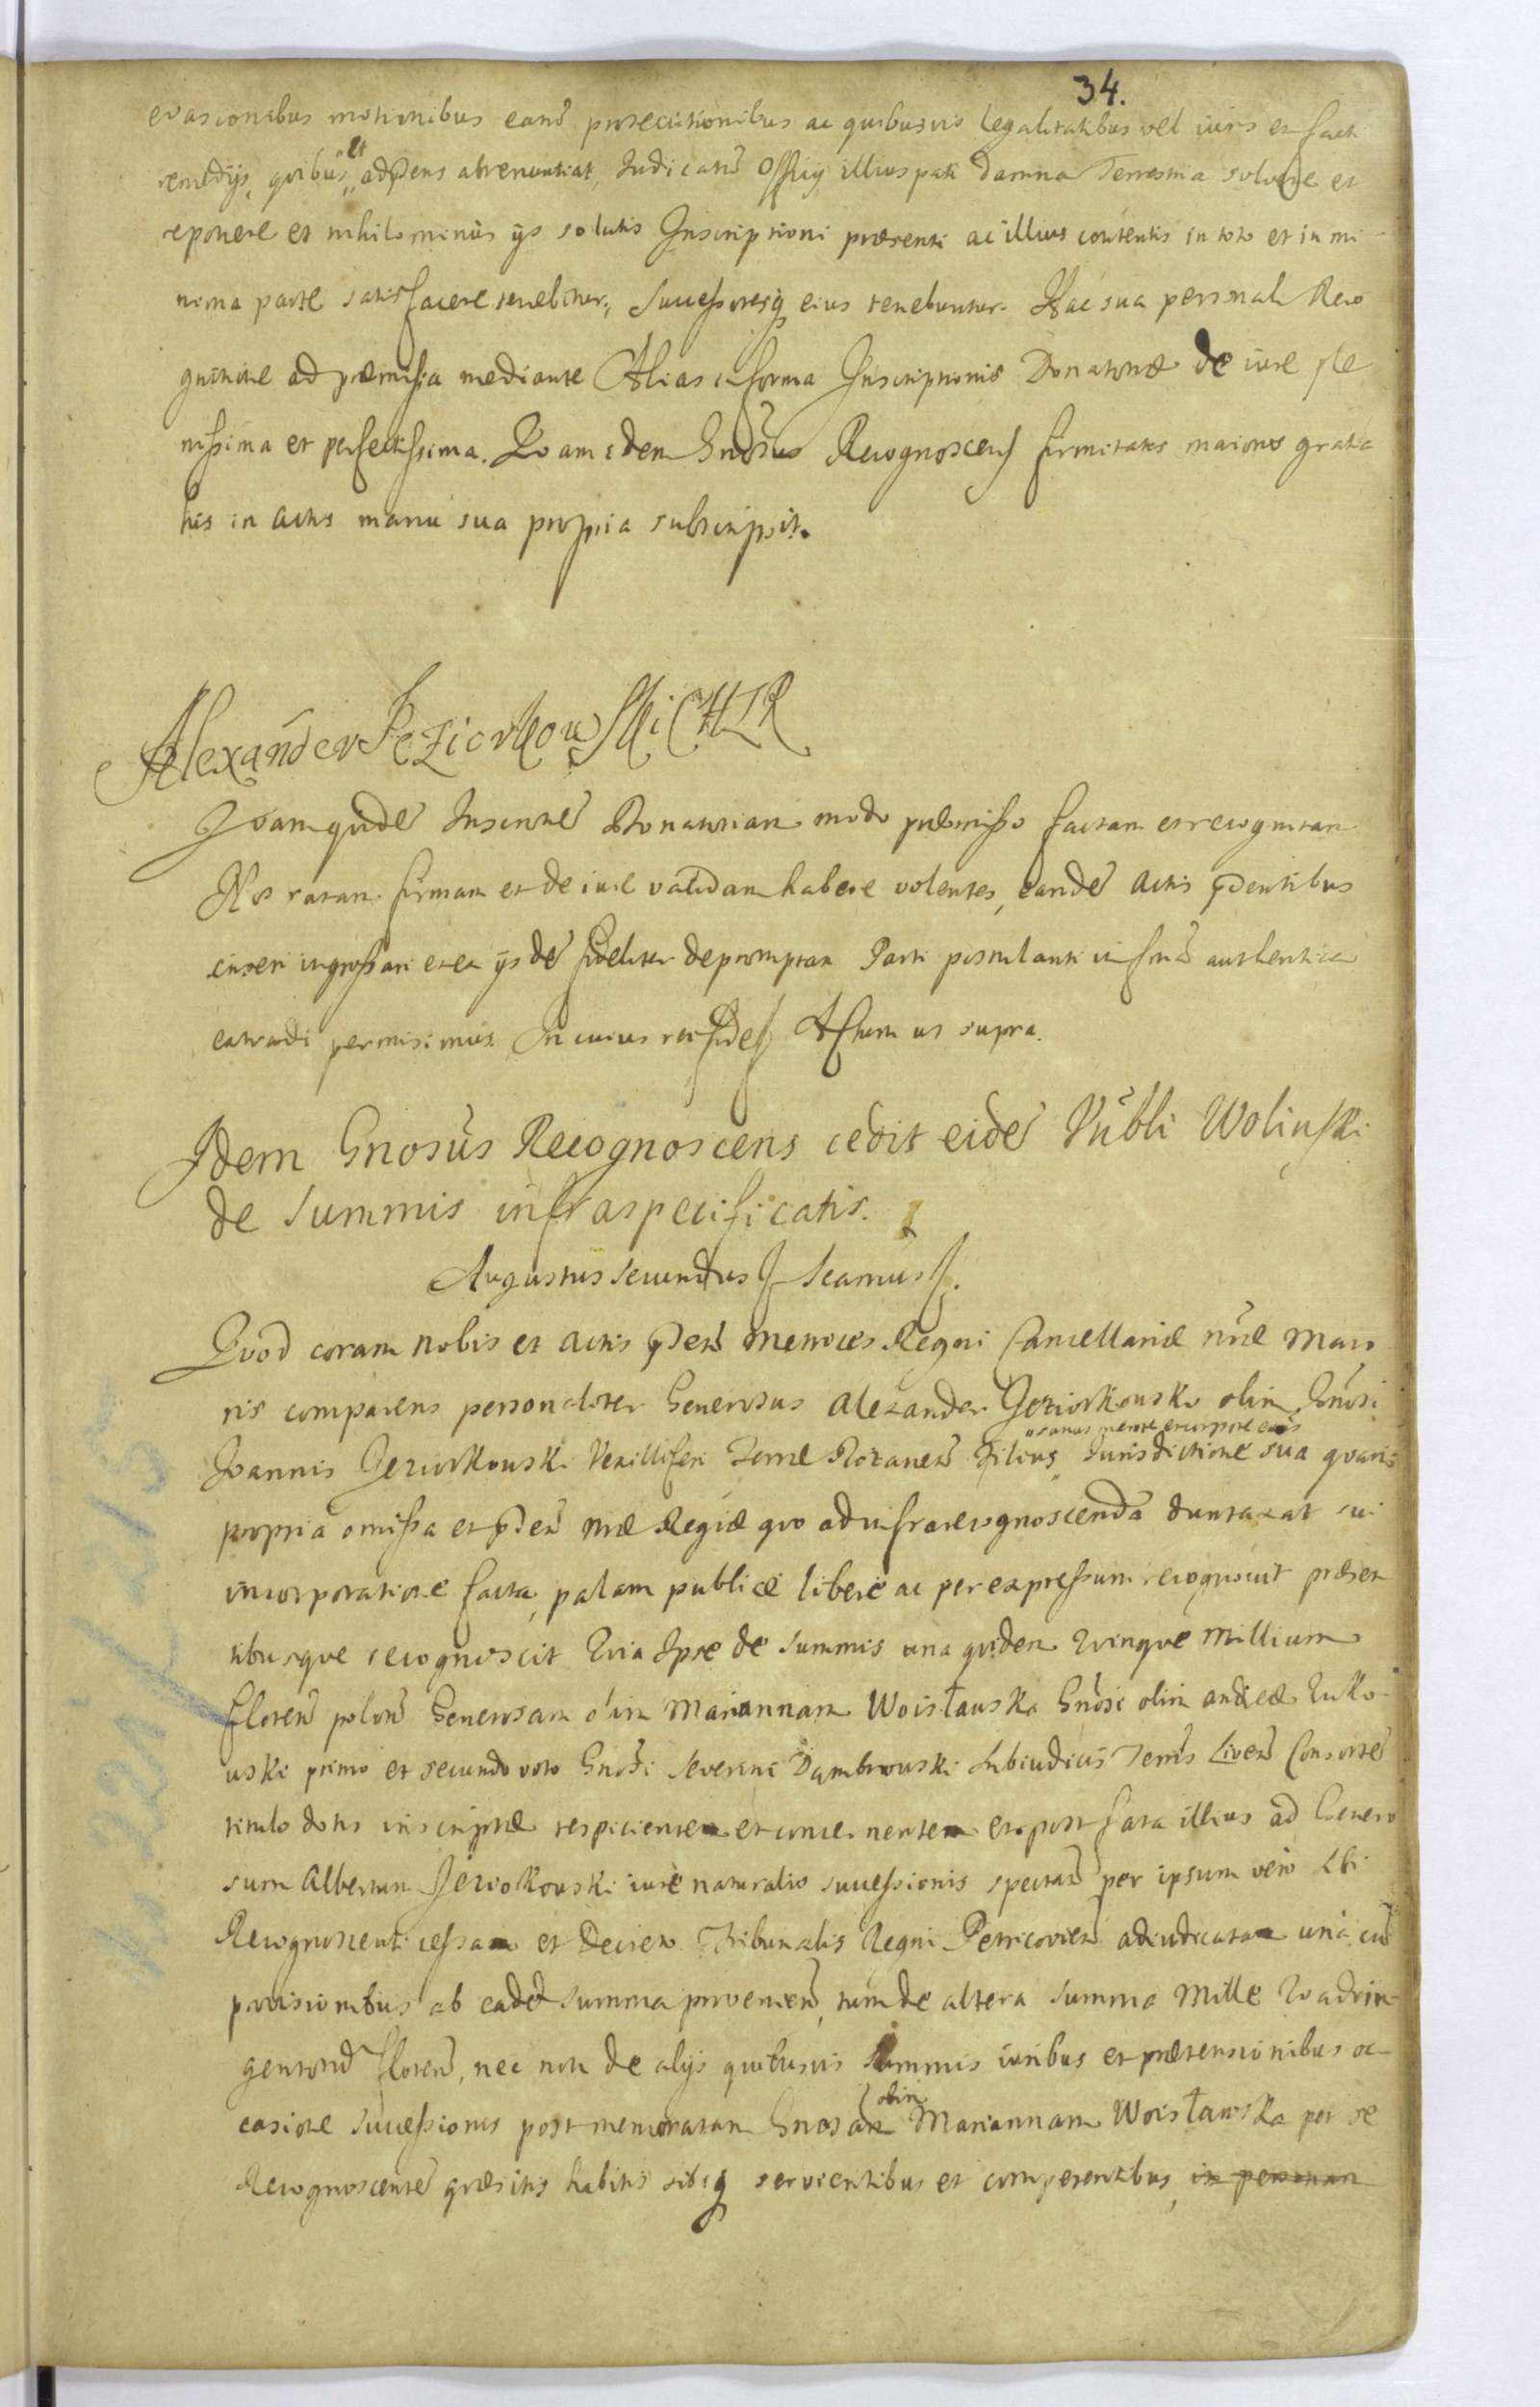 34.
evasionibus motionibus earũ prosecutionibus ac quibusvis legalitatibus vel iuris et facti
remedijs, quibus et ad pñs abrenuntiat, Iudicatũ Officij illius pati damna Terrestria solvere et
reponere et nihilominùs ijs solutis Inscriptioni præsenti ac illius contentis in toto et in mi
nima parte satisfacere tenebitur, Successoresq eius tenebuntur. Hac sua personali Reco
gnitione ad præmissa mediante Alias in forma Inscriptionis Donatoriæ de iure ple
nissima et perfectissima. Quam idem Gnosus Recognoscens firmitatis maioris gratia
his in Actis manu sua propria subscripsit.
Alexander Jeziorkowski
Quam quidẽ Inscriptionẽ Donatoriam modo præmisso factam et recognitam
Nos ratam firmam et de iure validam habere volentes, eandẽ Actis pñtibus
inseri ingrossari et ex ijsdẽ fideliter depromptam Parti postulanti in formã authentica
extradi permisimus. In cuius rei fidẽ Actum ut supra.
Idem Gnosũs Recognoscens cedit eidẽ Nũbli Wolinski
de Summis infraspecificatis.
Augustus Secundus Scamus.
Quod coram nobis et Actis pñtibũ Metrices Regni Cancellariæ nræ Maio
ris comparens personaliter Generosus Alexander Jeziorkowski olim Gnosi
sanus mente et corpore exis
Joannis Jeziorkowski Vexilliferi Terræ Rozanen Filius, Iurisdictione sua quavis
propria omissa et pñti nræ Regiæ quo ad infrarecognoscenda duntaxat sui
incorporatione facta, palam publice libere ac per expressum recognovit præsen
tibusque recognoscit Quia Ipse de Summis una quidem Quinque Millium
floren polon Generosam olim Mariannam Woisławska Gnosi olim Andreæ Zuko
wski primo et secundo voto Gnosi Severini Dąmbrowski Subiudicis Terris Liven Consortẽ
titulo dotis inscriptæ respiciente et concernente et post fata illius ad Genero
sum Albertum Jeziorkowski iure naturalis successionis spectan per ipsum verò Sbi
Recognoscenti cessam et Decreto Tribunalis Regni Petricovien adiudicatam unà cũ
provisionibus ab eadẽ summa provenien, tum de altera summa Mille Quadrin
gentorũ floren, nec non de alijs quibusvis summis iuribus et prætensionibus oc-
casione successionis post memoratam Gnosam olim Mariannam Woisławska per se
Recognoscentẽ quæsitis habitis sibiq servientibus et competentibus, in personam